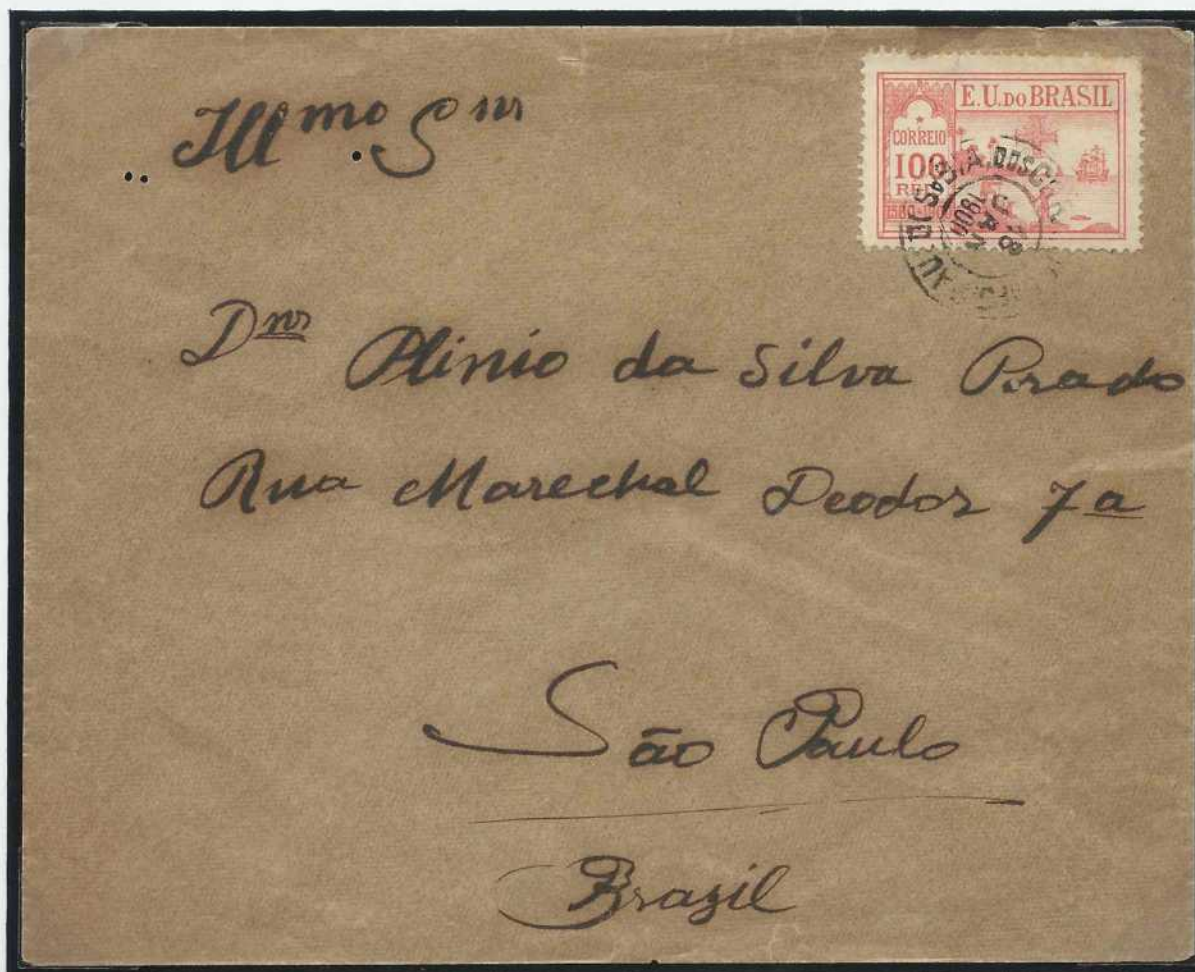 E.U. DO BRASIL
CORREIO
100
Illmo Snr
Dnr Plinio da Silva Prado
Rua Marechal Deodor 7a
São Paulo
Brazil